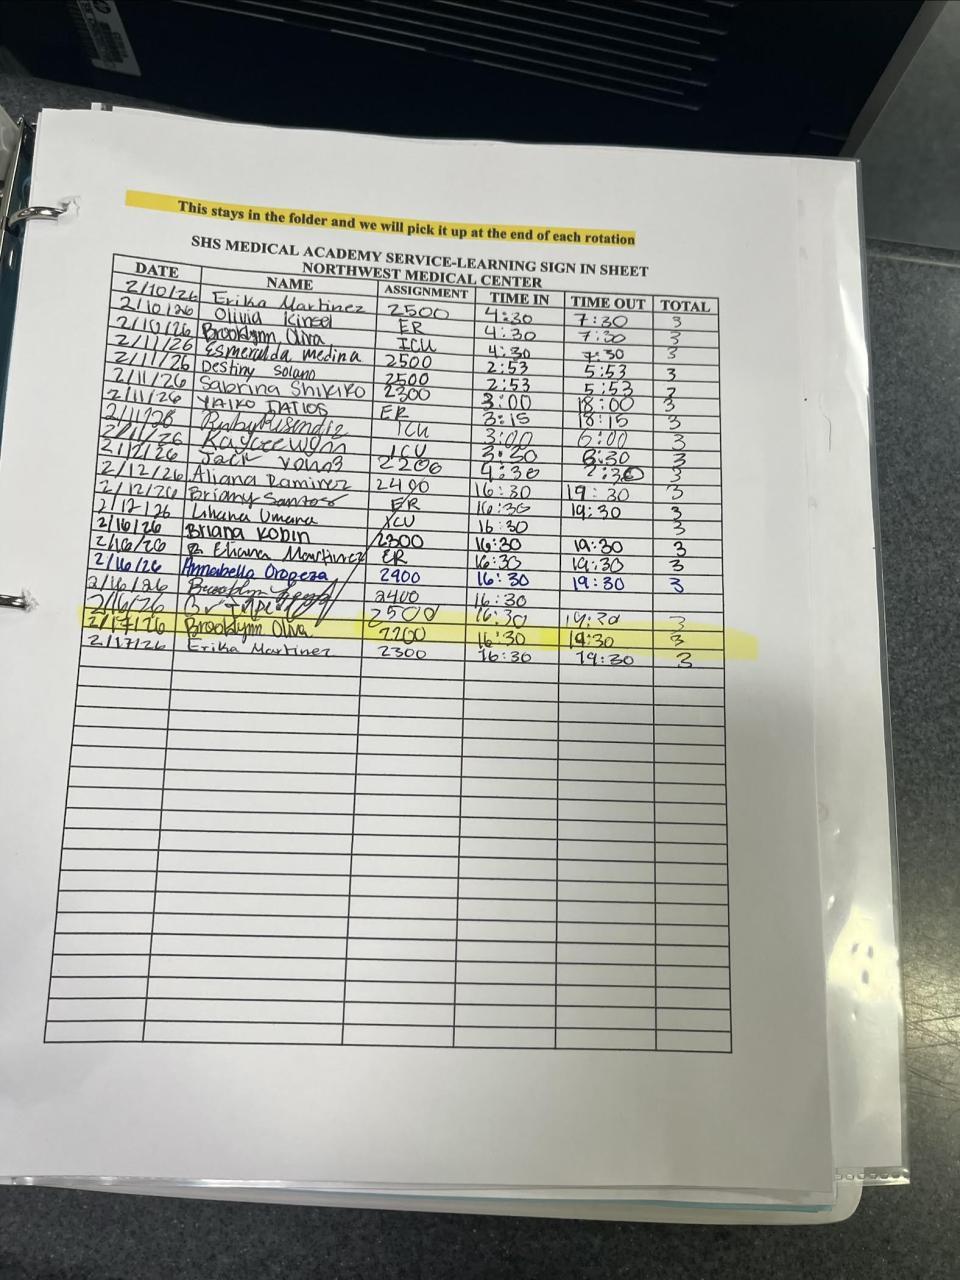 This stays in the folder and we will pick it up at the end of each rotation
SHS MEDICAL ACADEMY SERVICE-LEARNING SIGN IN SHEET
NORTHWEST MEDICAL CENTER
DATE NAME ASSIGNMENT TIME IN TIME OUT TOTAL
2/10/26 Erika Martinez 2500 4:30 7:30 3
2/10/26 Olivia Kinsel ER 4:30 7:30 3
2/10/26 Brooklynn Oliva ICU 4:30 7:30 3
2/11/26 Esmeralda Medina 2500 2:53 5:53 3
2/11/26 Destiny Solano 2500 2:53 5:53 3
2/11/26 Sabrina 2300 3:00 18:00 3
2/11/26 ER 3:15 18:15 3
2/11/26 Ruby ICU 3:00 6:00 3
2/11/26 Kaylee Wynn ICU 3:30 6:30 3
2/12/26 Jack 2200 4:30 3
2/12/26 Aliana Ramirez 2400 16:30 19:30 3
2/12/26 Briany Santos ER 16:30 19:30 3
2/12/26 Liliana Umana ICU 16:30 3
2/16/26 Briana Robin 2300 16:30 19:30 3
2/16/26 Eliana Martinez ER 16:30 19:30 3
2/16/26 Annabella Oropeza 2400 16:30 19:30 3
2/16/26 Brooklyn 2400 16:30
2/16/26 2500 16:30 19:30 3
2/17/26 Brooklynn Oliva 2200 16:30 19:30 3
2/17/26 Erika Martinez 2300 16:30 19:30 3